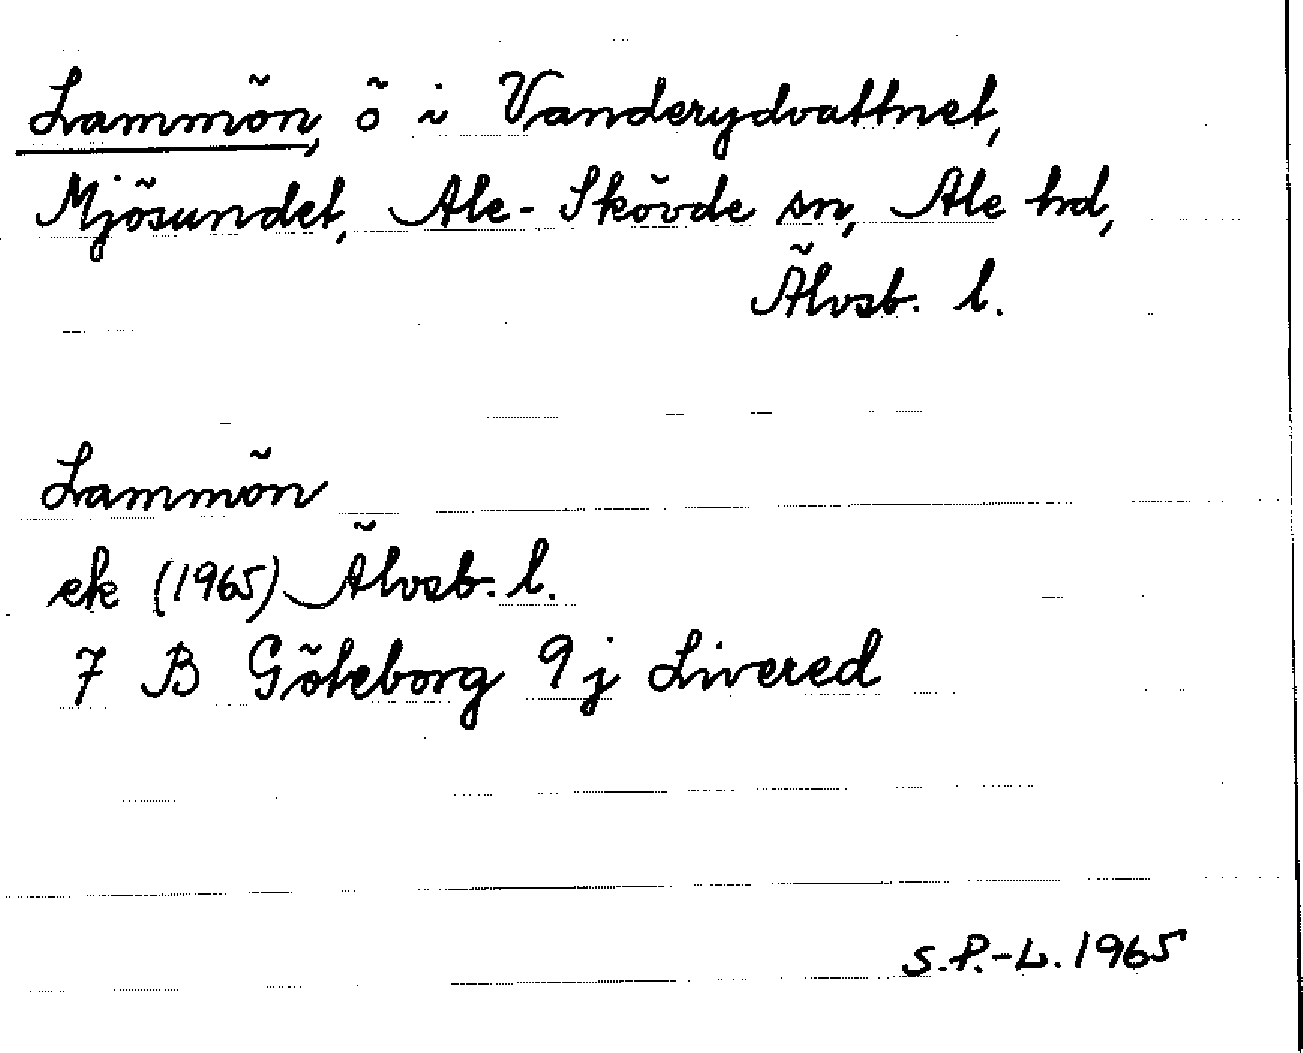 Lammön, ö i Vanderydvattnet,
Mjösundet, Ale-Skövde sn, Ale hd,
Älvsb. l.
Lammön
ek (1965) Älvsb. l.
7 B Göteborg 9 j Livered
S.P.-L. 1965